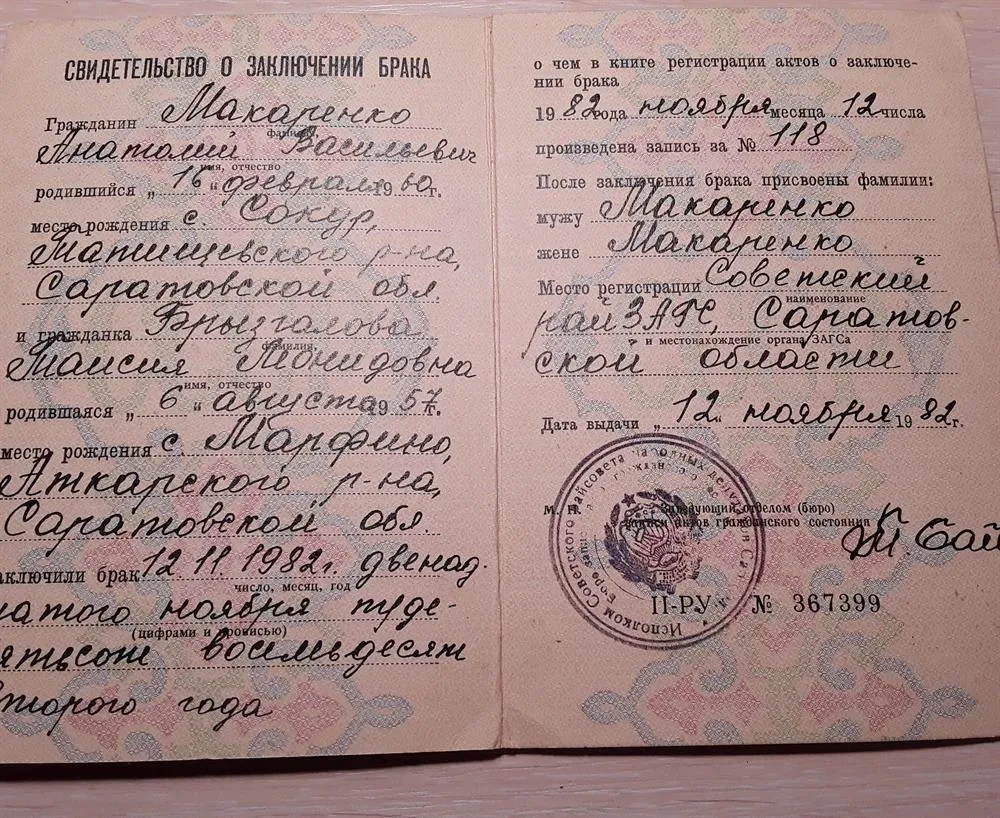 СВИДЕТЕЛЬСТВО О ЗАКЛЮЧЕНИИ БРАКА
Гражданин Макаренко
фамилия
Анатолий Васильевич
имя, отчество
родившийся „16“ февраля 1960г.
место рождения с. Сокур,
Татищевского р-на,
Саратовской обл.
и гражданка Брызгалова
фамилия,
Таисия
имя, отчество
родившаяся „6“ августа 1957г.
место рождения с. Марфино,
Аткарского р-на,
Саратовской обл.
аключили брак 12 11. 1982г. двенад-
число, месяц, год
цатого ноября
(цифрами и прописью)
восемьдесят
второго года
о чем в книге регистрации актов о заключе-
нии брака
1982 года ноября месяца 12 числа
произведена запись за № 118
После заключения брака присвоены фамилии:
мужу Макаренко
жене Макаренко
Место регистрации Советский
наименование
райЗАГС, Саратов-
и местонахождение органа ЗАГСа
ской области
Дата выдачи „12“ ноября 1982г.
М. П. Заведующий отделом (бюро)
записи актов гражданского состояния
II-РУ № 367399
Исполком Советского райсовета народных депутатов